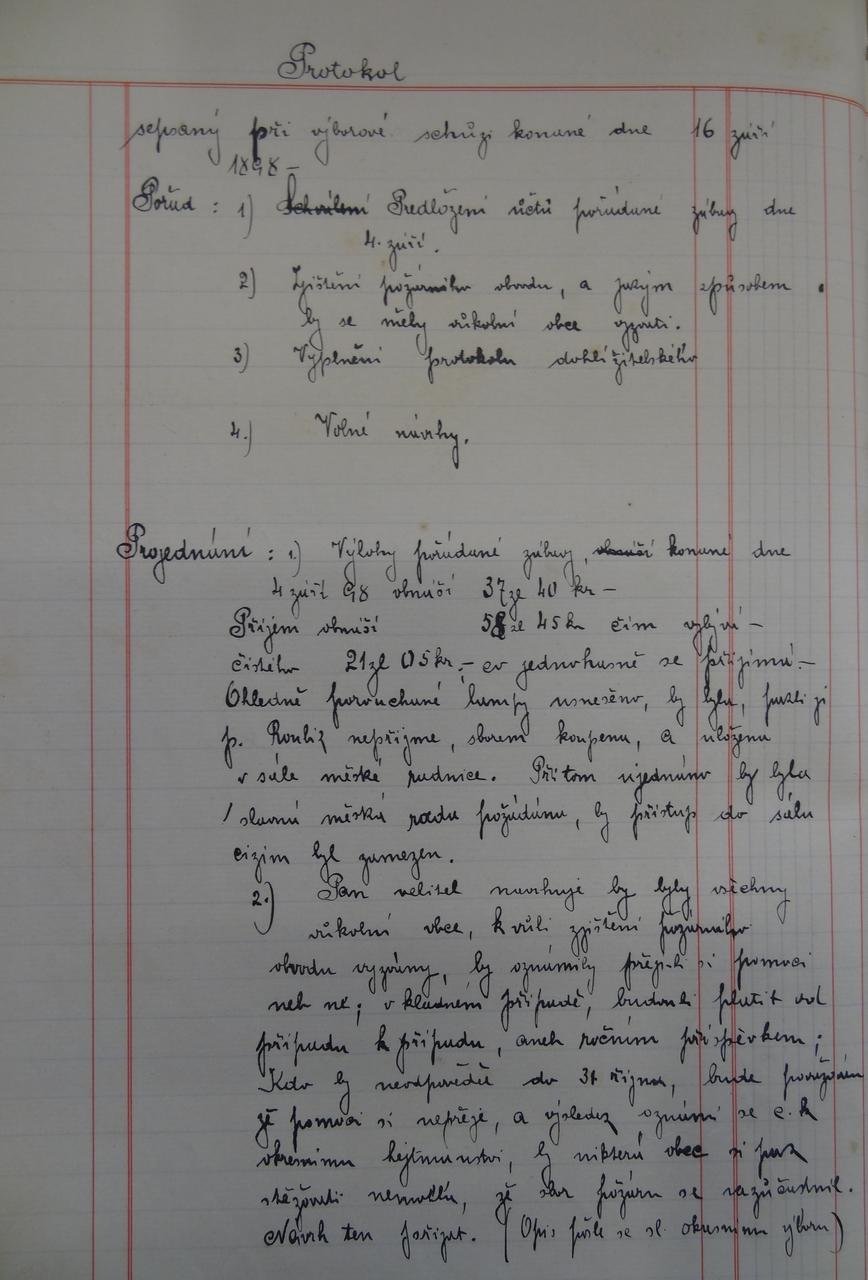 Protokol
sepsaný při výborové schůzi konané dne 16 září
1898 –
Pořad : 1) Schválení Předložení účtů pořádané zábavy dne
4. září.
2) Zjištění požárního obvodu, a jakým způsobem
by se měly okolní obce vyzvati.
3) Vyplnění protokolu dohlížitelského
4.) Volné návrhy.
Projednání : 1.) Výlohy pořádané zábavy, obnáší konané dne
4 září 98 obnáší 37 ze 40 kr –
Příjem obnáší 58 ze 45 kr čím vybývá –
čistého 21 zl 05 kr, – co jednohlasně se přijímá. –
Ohledně porouchané lampy usneseno, by byla, jakli ji
p. nepřijme, sborem koupena, a uložena
v sále městské radnice. Při tom ujednáno by byla
slavná městská rada požádána, by přístup do sálu
cizím byl zamezen.
2.) Pan velitel navrhuje by byly všechny
okolní obce, k vůli zjištění požárního
obvodu vyzvány, by oznámily přejí-li si pomoci
neb né; v kladném případě, budou li platit od
případu k případu, aneb ročním příspěvkem;
Kdo by neodpověděl do 31 října, bude považován
že pomoci si nepřeje, a výsledek oznámí se c. k
okresnímu hejtmanství, by nikterá obec si pak
stěžovati nemohla, že sbor požáru se nezúčastnil.
Návrh ten přijat. (Opis pošle se sl. okresnímu výboru)